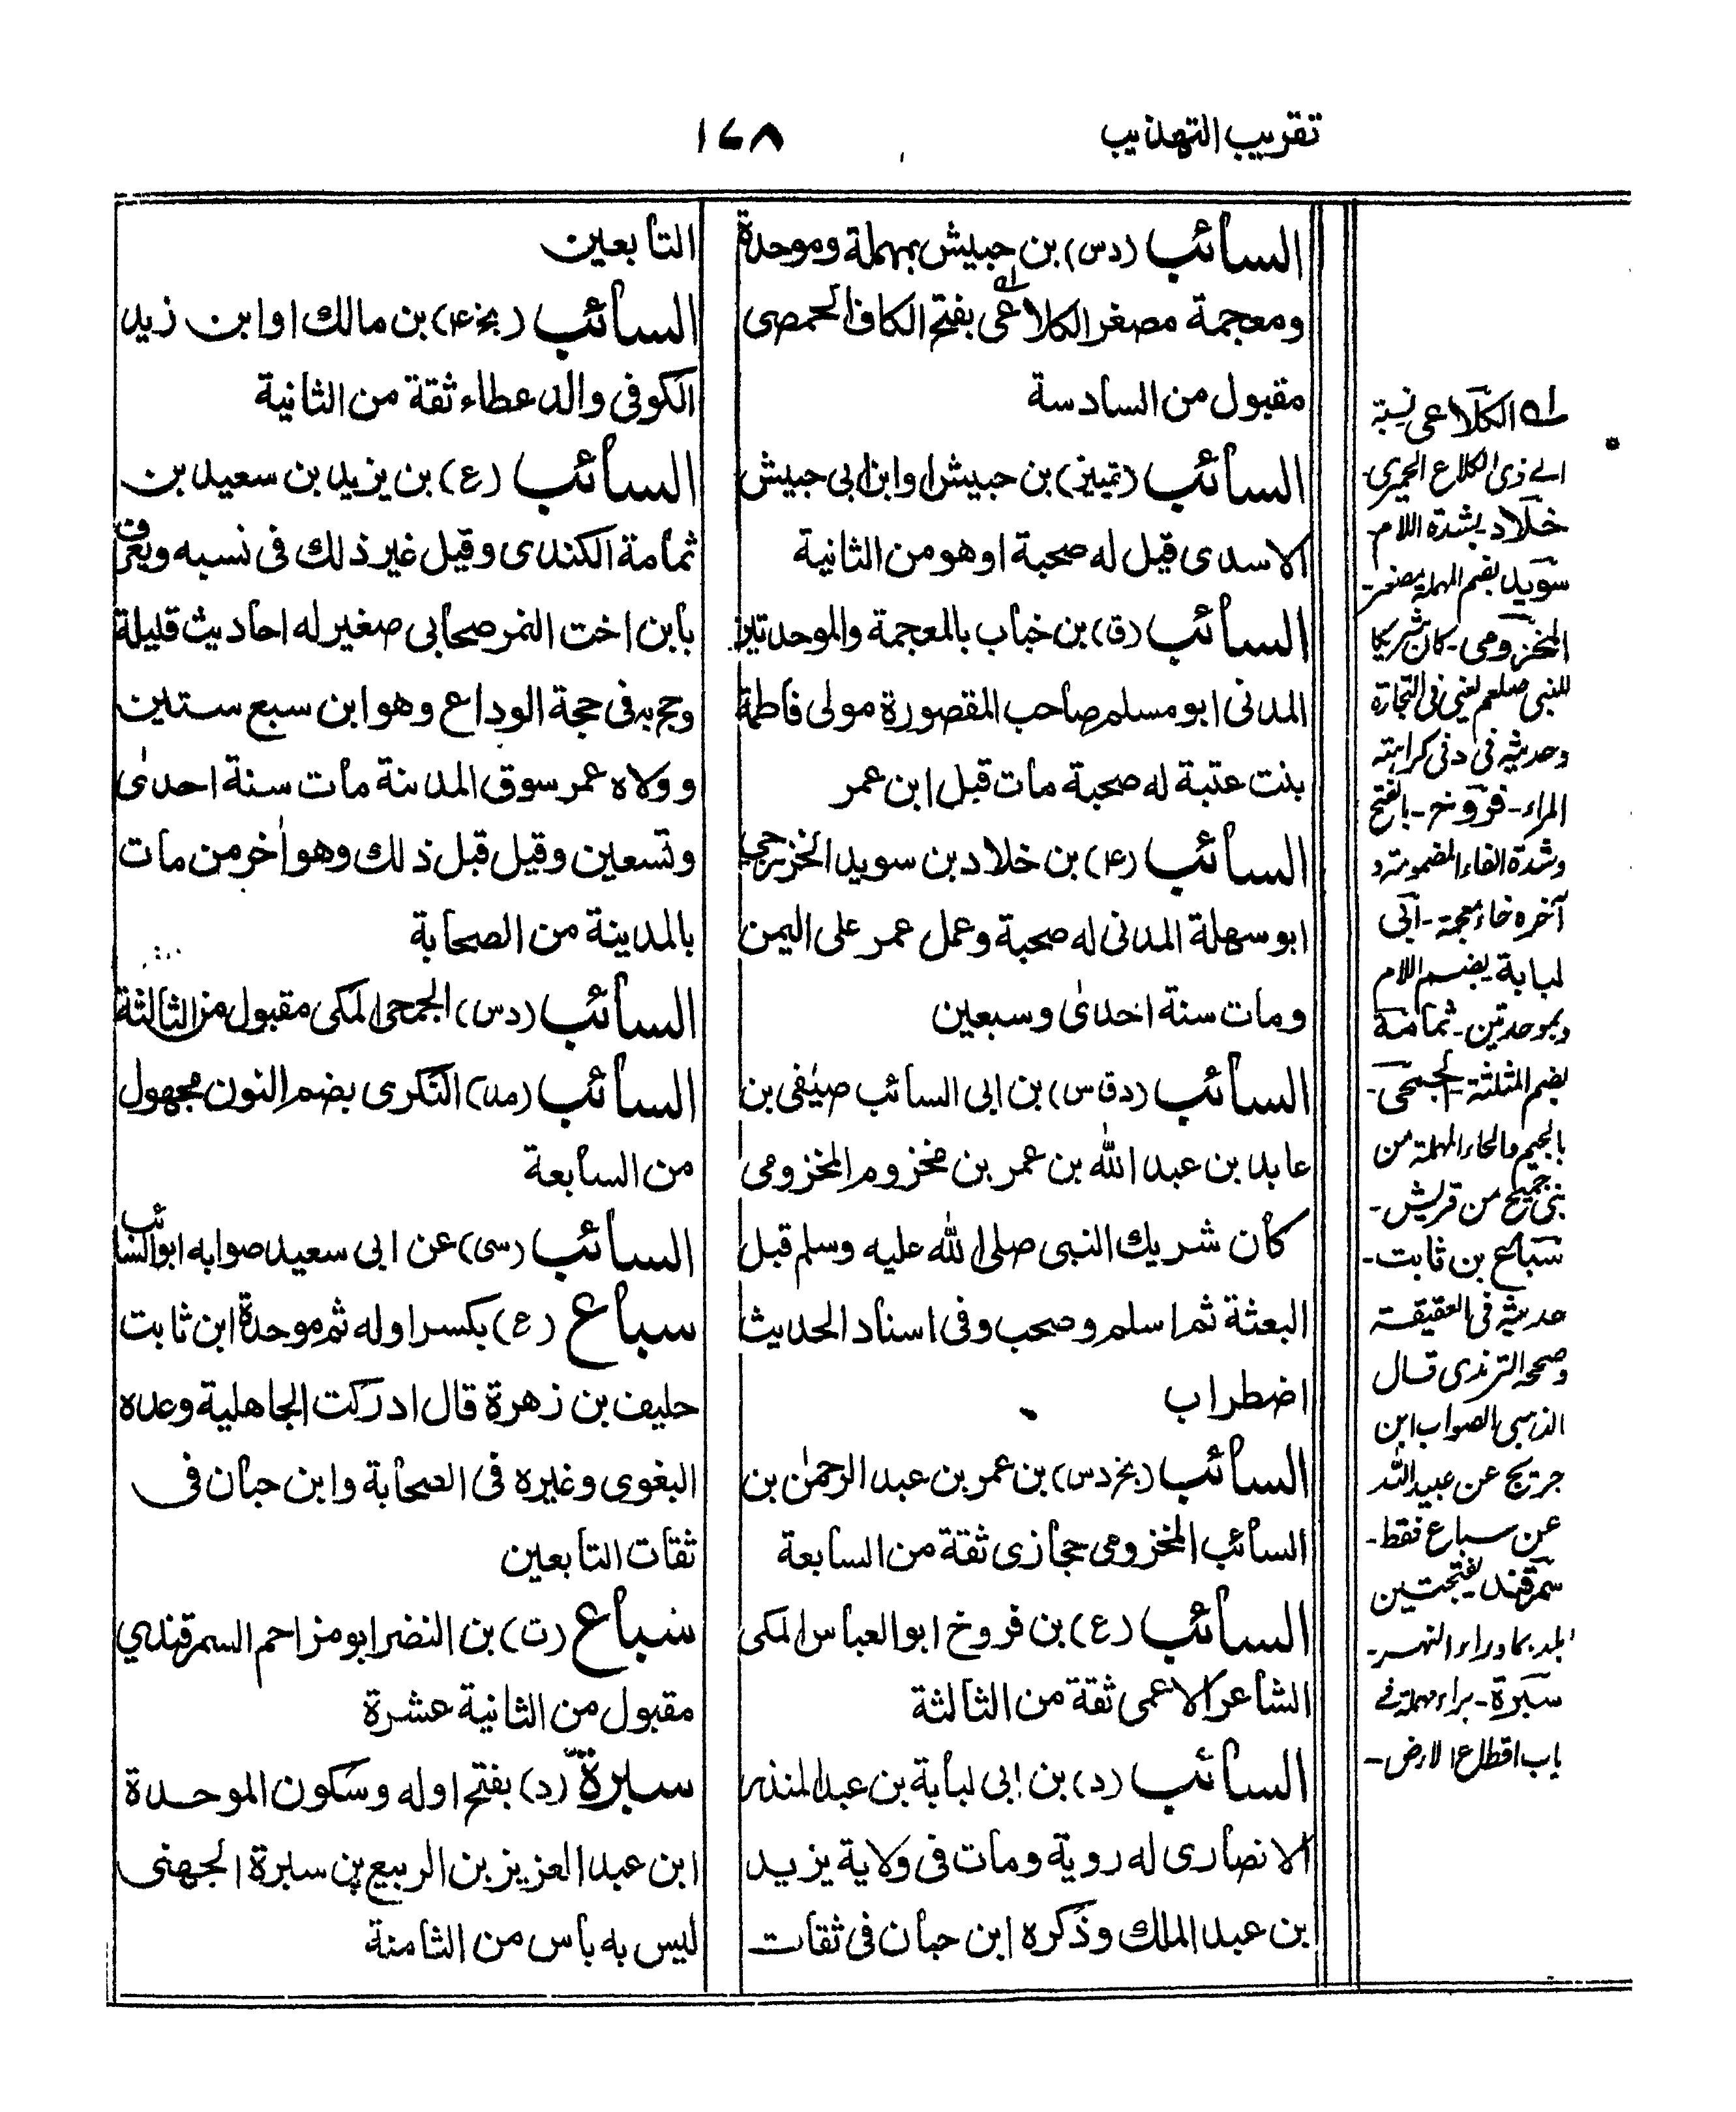 تقريب التهذيب
١٤٨
السائب (دس) بن حبيش بمهملة وموحدة
ومعجمة مصغر الكلاعى بفتح الكاف الحمصى
مقبول من السادسة
السائب (تمييز) بن حبيش اوابن ابى حبيش
الاسدى قيل له صحبة اوهو من الثانية
السائب (ق) بن خباب بالمعجمة والموحدتين
المدنى ابو مسلم صاحب المقصورة مولى فاطمة
بنت عتبة له صحبة مات قبل ابن عمر
السائب (۴) بن خلاد بن سويد الخزرجى
ابو سهلة المدنى له صحبة وعمل عمر على اليمن
ومات سنة احدى وسبعين
السائب (دقاس) بن ابى السائب صيفى بن
عابد بن عبد الله بن عمر بن مخزوم المخزومى
كان شريك النبى صلى الله عليه وسلم قبل
البعثة ثم اسلم وصحب وفى اسناد الحديث
اضطراب
السائب (بخ دس) بن عمر بن عبد الرحمٰن بن
السائب المخزومى حجازى ثقة من السابعة
السائب (ع) بن فروخ ابو العباس المكى
الشاعر الاعمى ثقة من الثالثة
السائب (د) بن ابى لبابة بن عبد المنذر
الانصارى له روية ومات فى ولاية يزيد
بن عبد الملك وذكره ابن حبان فى ثقات
التابعين
السائب (بخ ۴) بن مالك اوابن زيد
الكوفى والد عطاء ثقة من الثانية
السائب (ع) بن يزيد بن سعيد بن
ثمامة الكندى وقيل غير ذلك فى نسبه ويعرف
بابن اخت النمر صحابى صغير له احاديث قليلة
وحج به فى حجة الوداع وهو ابن سبع ستين
وولاه عمر سوق المدينة مات سنة احدى
وتسعين وقيل قبل ذلك وهو اٰخر من مات
بالمدينة من الصحابة
السائب (دس) الجمحى المكى مقبول من الثالثة
السائب (مد) النكرى بضم النون مجهول
من السابعة
السائب (سى) عن ابى سعيد صوابه ابو السائب
سباع (ع) بكسر اوله ثم موحدة ابن ثابت
حليف بن زهرة قال ادركت الجاهلية وعده
البغوى وغيره فى الصحابة وابن حبان فى
ثقات التابعين
سباع (ت) بن النضر ابو مزاحم السمرقندي
مقبول من الثانية عشرة
سبرة (د) بفتح اوله وسكون الموحدة
ابن عبد العزيز بن الربيع بن سبرة الجهنى
ليس به باس من الثامنة
له الكلاعى نسبة
الے ذى الكلاع الحميرى-
خلاد- بشدة اللام-
سويد بضم المهملة مصغر-
المخزومى- كان شريكا
للنبى صلعم يعنى فى التجارة
وحديثه فى د فى كراهته
المراء- فروخ- بالفتح
وشدة الفاء المضمومة و
آخره خاء معجمة- ابى
لبابة بضم اللام
وبموحدتين- ثمامة
بضم المثلثة- الجمحى-
بالجيم والحاء المهملة من
بنى جميح من قريش-
سباع بن ثابت-
حديثه فى العقيقة
وصححه الترمذى قال
الذهبى الصواب ابن
جريج عن عبيد الله
عن سباع فقط-
سمرقند بفتحتين
بلد بما وراء النهر-
سبرة- براء مهملة فے
باب اقطاع الارض-